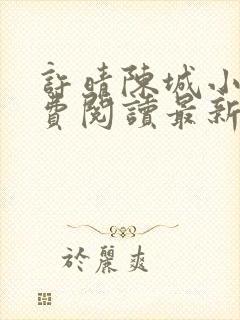 許晴陳城小
費閱讀最新
於麗爽